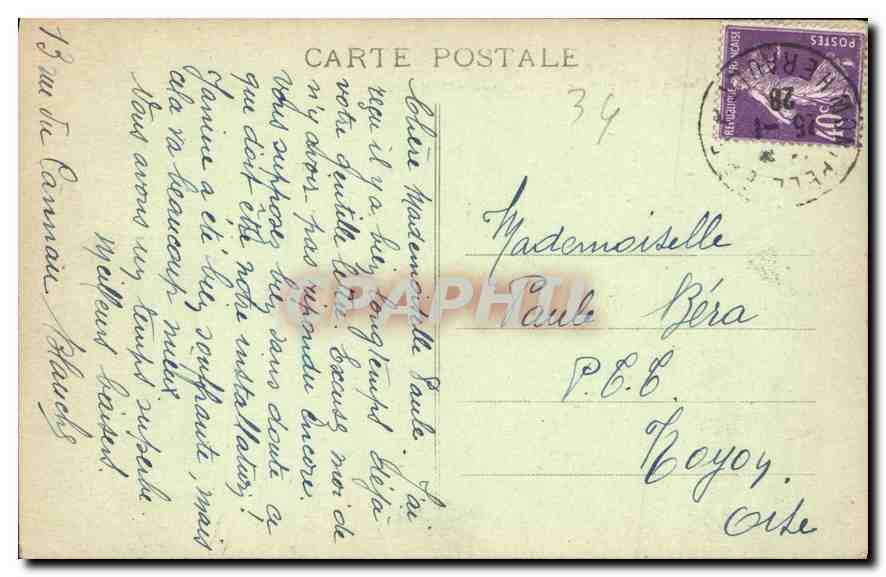 CARTE POSTALE
34
Chère Mademoiselle Paule. J'ai
reçu il y a bien longtemps déjà
votre gentille lettre. Excusez moi de
n'y avoir pas répondu encore.
Vous supposez bien sans doute ce
que doit être notre installation!
Janine a été bien souffrante, mais
cela va beaucoup mieux
Nous avons un temps superbe.
Meilleurs baisers
Blanche
13 rue du Cannau
Mademoiselle
Paule Béra
P.T.T.
Noyon
Oise
POSTES
REPUBLIQUE FRANÇAISE
40c
HERAULT
25 -1
28
CPAPHIL